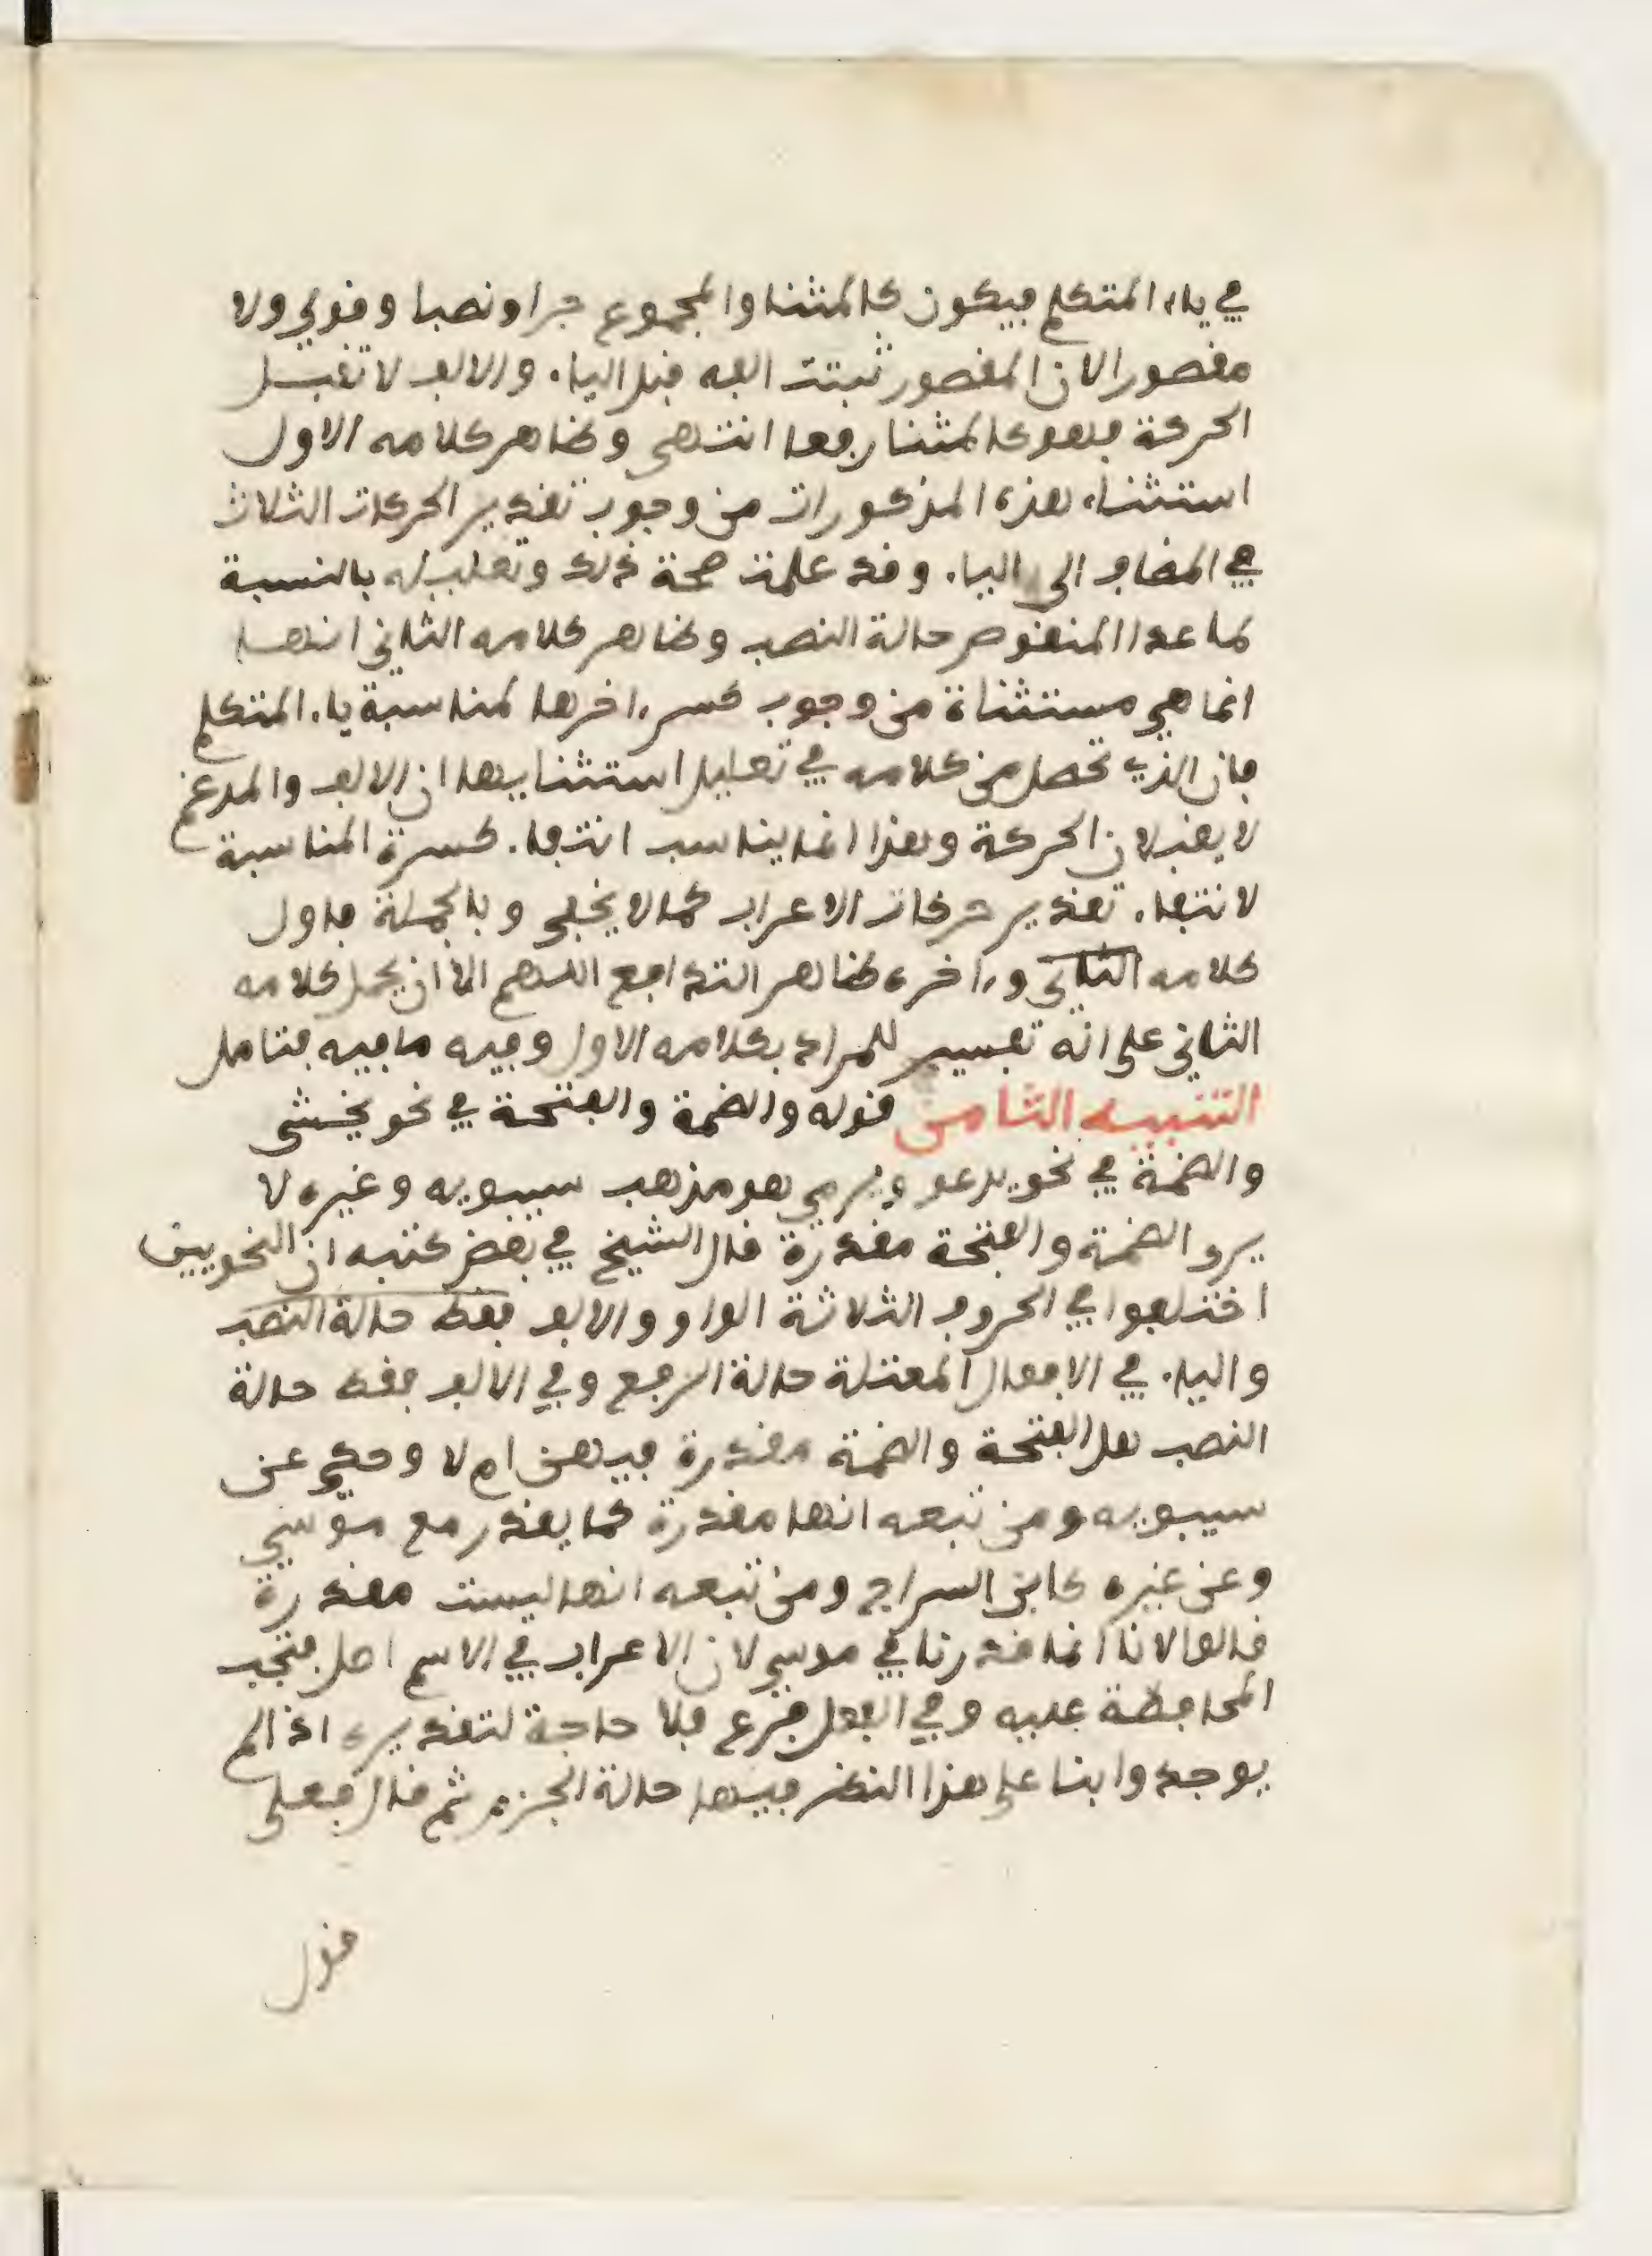 في ياء المتكلم فيكون كالمثنا والمجموع جرا ونصبا وقولي ولا
مقصورا لان المقصور تثبت الفه قبل الياء والالف لا تقبل
الحركة فهو كالمثنا رفعا انتهى وظاهر كلامه الاول
استثناء هذه المذكورات من وجوب تقدير الحركات الثلاث
في المضاف الى الياء وقد علمت صحة ذلك وتعليله بالنسبة
لما عدا المنقوص حالة النصب وظاهر كلامه الثاني انها
انما هي مستثناة من وجوب كسر ءاخرها لمناسبة ياء المتكلم
فان الذي تحصل من كلامه في تعليل استثنايها ان الالف والمدغم
لا يقبلان الحركة وهذا انما يناسب انتفاء كسرة المناسبة
لا نتفاء تقدير حركات الاعراب كما لا يخفى وبالجملة فاول
كلامه الثاني وءاخره ظاهر التدافع اللهم الا ان يحمل كلامه
الثاني على انه تفسير للمراد بكلامه الاول وفيه ما فيه فتامل
التنبيه الثامن قوله والضمة والفتحة في نحو يخشى
والضمة في نحو يدعو ويرمي هو مذهب سيبويه وغيره لا
يرى الضمة والفتحة مقدرة قال الشيخ في بعض كتبه ان النحويين
اختلفوا في الحروف الثلاثة الواو والالف فقط حالة النصب
والياء في الافعال المعتلة حالة الرفع وفي الالف فقط حالة
النصب هل الفتحة والضمة مقدرة فيهن ام لا وحكي عن
سيبويه ومن تبعه انها مقدرة كما يقدر مع موسى
وعن غيره كابن السراج ومن تبعه انها ليست مقدرة
قالوا لانا انما قدرنا في موسى لان الاعراب في الاسم اصل فتجب
المحافظة عليه وفي الفعل فرع فلا حاجة لتقديره اذا لم
يوجد وابنا على هذا النظر فيها حالة الجزم ثم قال فعلى
قول